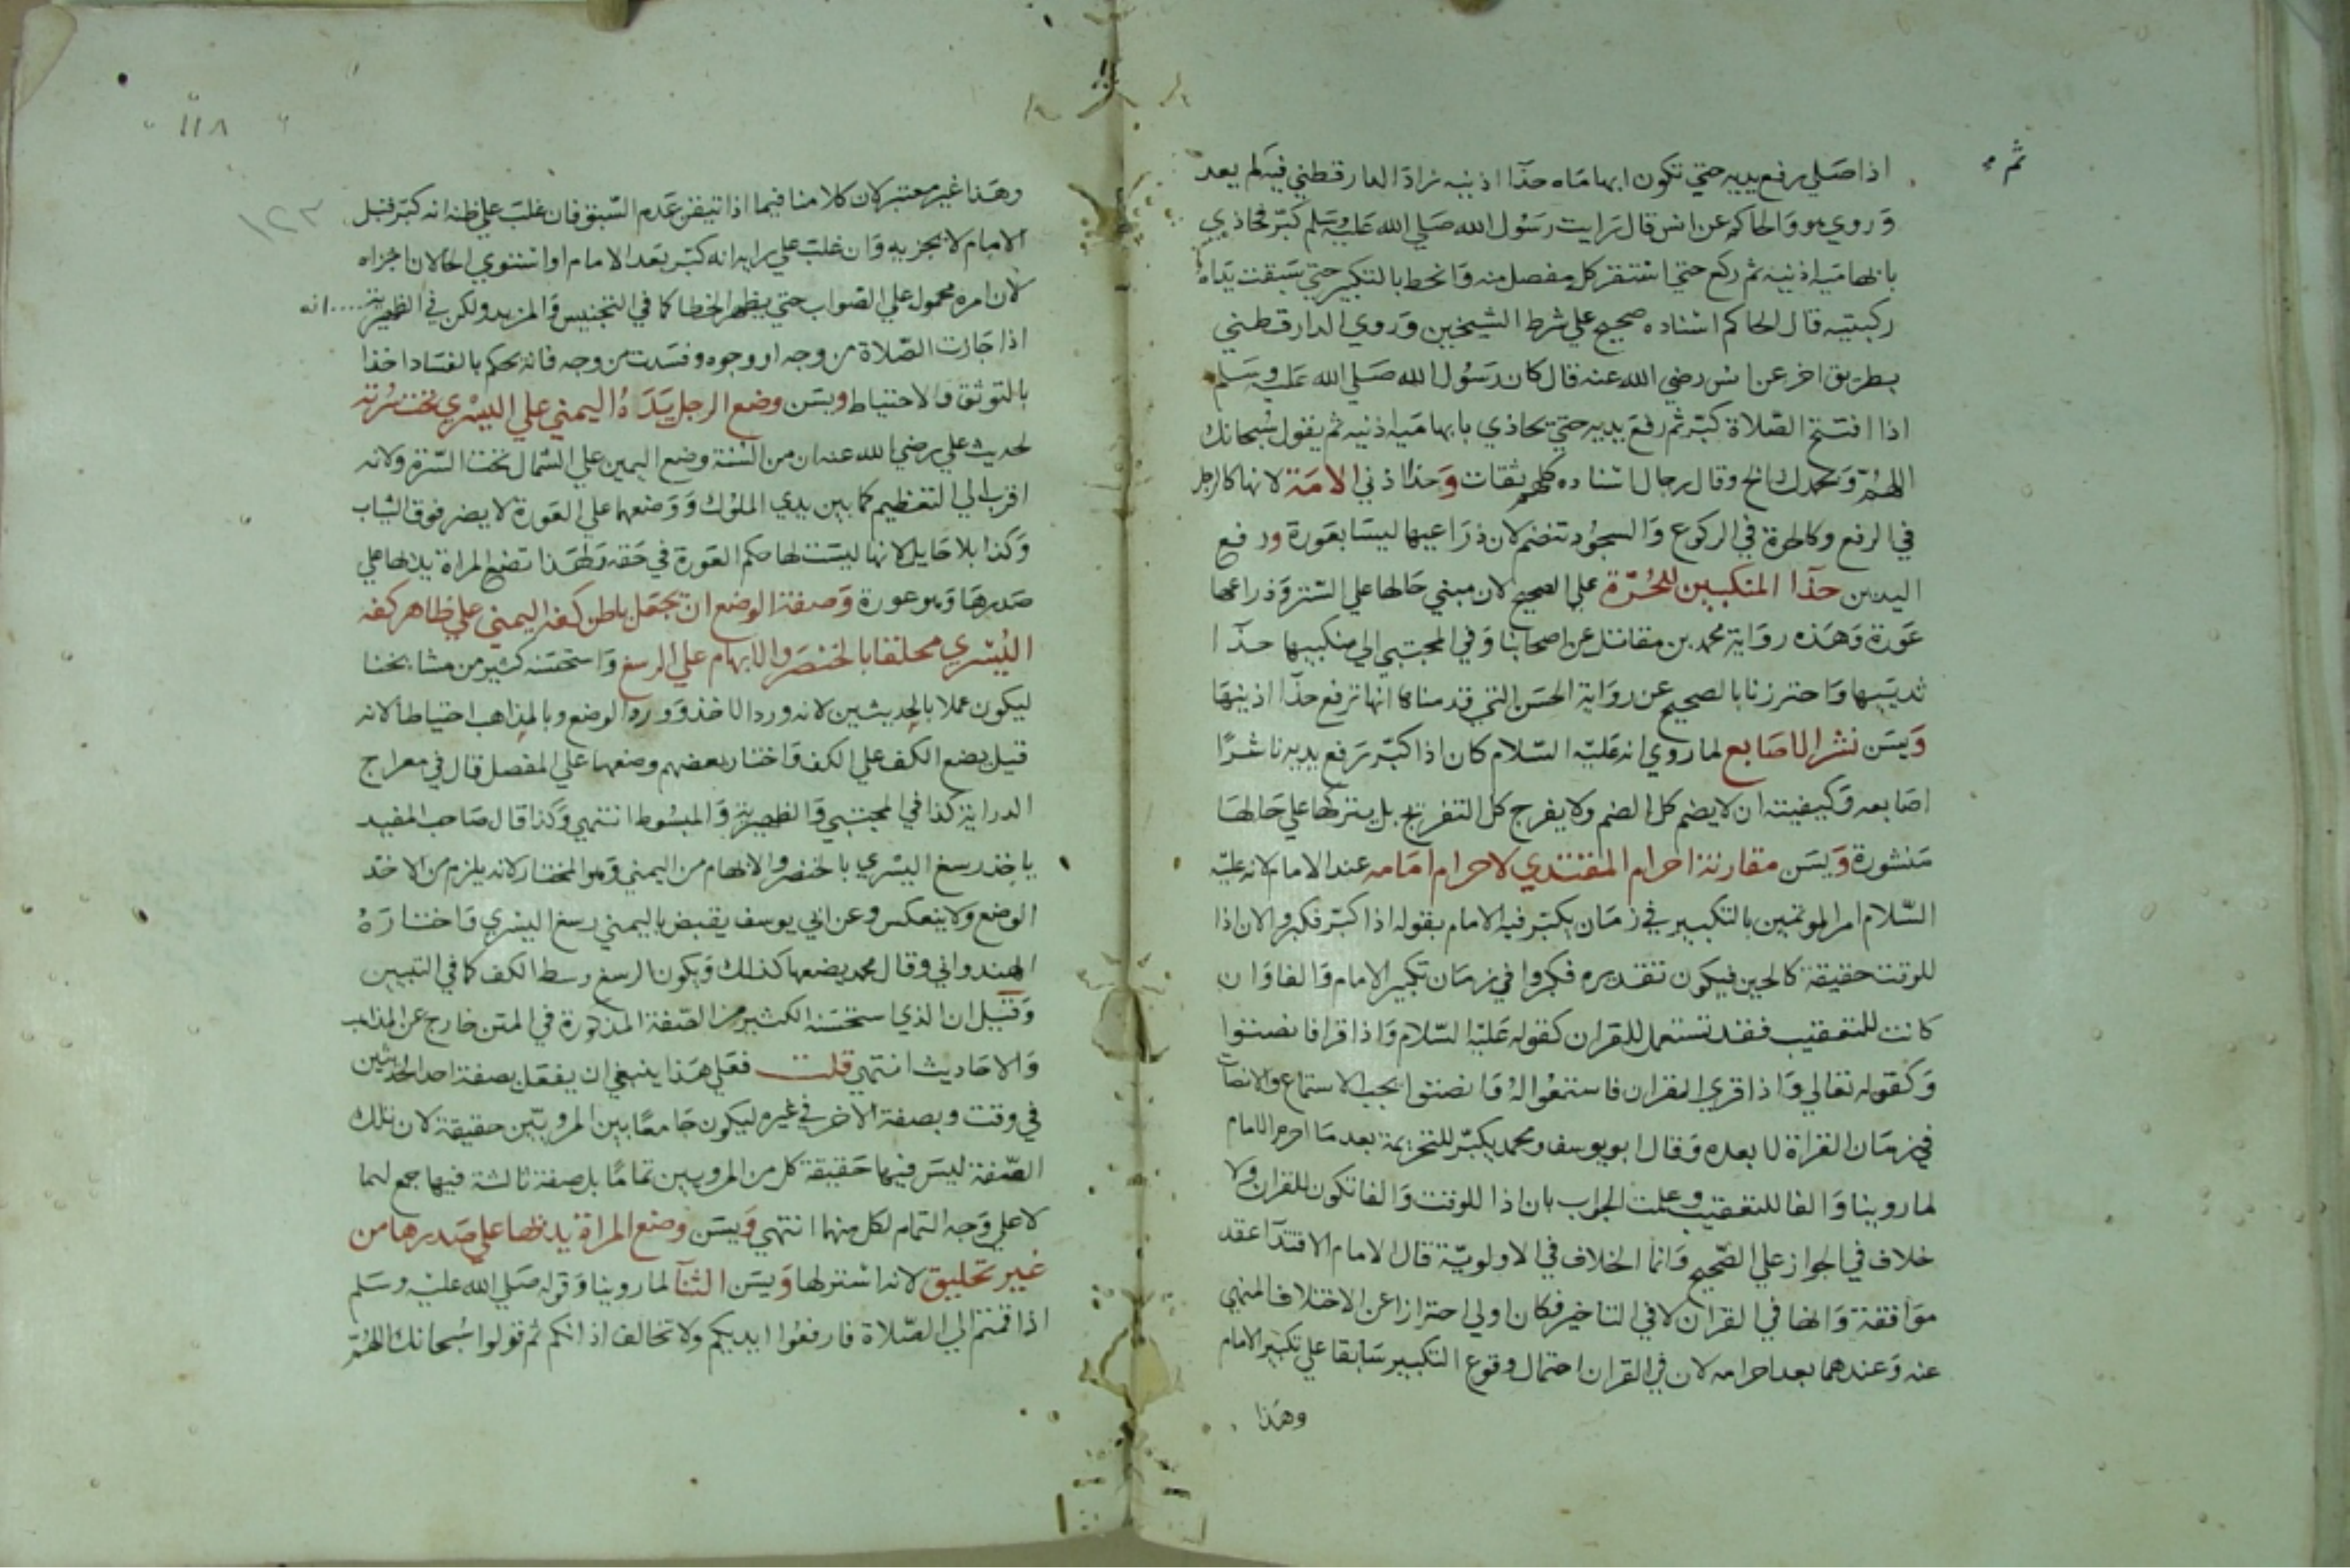 اذا صلي رفع يديه حتي تكون ابهاماه حذآ اذنيه زاد الدارقطني فيه لم يعد
ثم
وروي هو والحاكم عن انس قال رايت رسول الله صلي الله عليه وسلم كبر فحاذي
بابهاميه اذنيه ثم ركع حتي استقر كل مفصل منه وانحط بالتكبير حتي سبقت يداه
ركبتيه قال الحاكم اسناده صحيح علي شرط الشيخين وروي الدارقطني
بطريق اخر عن انس رضي الله عنه قال كان رسول الله صلي الله عليه وسلم
اذا افتتح الصلاة كبر ثم رفع يديه حتي يحاذي بابهاميه اذنيه ثم يقول سبحانك
اللهم وبحمدك الخ وقال رجال اسناده كلهم ثقات وحذآ اذني الامة لانها كالرجل
في الرفع وكالحرة في الركوع والسجود تنضم لان ذراعيها ليسا بعورة ورفع
اليدين حذآ المنكبين للحرة علي الصحيح لان مبني حالها علي الستر وذراعها
عورة وهذه رواية محمد بن مقاتل عن اصحابنا وفي المجتبي الي منكبيها حذا
ثدييها واحترزنا بالصحيح عن رواية الحسن التي قدمناها انها ترفع حذآ اذنيها
ويسن نشر الاصابع لما روي انه عليه السلام كان اذا كبر رفع يديه ناشرا
اصابعه وكيفيته ان لا يضم كل الضم ولا يفرج كل التفريج بل يتركها علي حالها
منشورة ويسن مقارنة احرام المقتدي لاحرام امامه عند الامام لانه عليه
السلام امر المؤتمين بالتكبير في زمان يكبر فيه الامام بقوله اذا كبر فكبروا لان اذا
للوقت حقيقة كالحين فيكون تقديره فكبروا في زمان تكبير الامام والفا وان
كانت للتعقيب فقد تستعمل للقران كقوله عليه السلام واذا قرا فانصتوا
وكقوله تعالي واذا قري القران فاستمعوا له وانصتوا يجب الاستماع والانصات
في زمان القراة لا بعده وقال ابو يوسف ومحمد يكبر للتحريمة بعد ما احرم الامام
لما روينا والفا للتعقيب وعلمت الجواب بان اذا للوقت والفا تكون للقران ولا
خلاف في الجواز علي الصحيح وانما الخلاف في الاولوية قال الامام الاقتدآ عقد
موافقة وانها في القران لا في التاخير فكان اولي احترازا عن الاختلاف المنهي
عنه وعندهما بعد احرامه لان في القران احتمال وقوع التكبير سابقا علي تكبير الامام
وهذا
١١٨
١٢٣
وهذا غير معتبر لان كلامنا فيما اذا تيقن عدم السبق فان غلب علي ظنه انه كبر قبل
الامام لا يجزيه وان غلب علي رايه انه كبر بعد الامام او استوي الحالان اجزاه
لان امره محمول علي الصواب حتي يظهر الخطا كما في التجنيس والمزيد ولكن في الظهيرية .... انه
اذا جازت الصلاة من وجه او وجوه وفسدت من وجه فانه يحكم بالفساد اخذا
بالتوثق والاحتياط ويسن وضع الرجل يده اليمني علي اليسري تحت سرته
لحديث علي رضي الله عنه ان من السنة وضع اليمين علي الشمال تحت السرة ولانه
اقرب الي التعظيم كما بين يدي الملوك ووضعهما علي العورة لا يضر فوق الثياب
وكذا بلا حايل لانها ليست لها حكم العورة في حقه ولهذا تضع المراة يديها علي
صدرها وهو عورة وصفة الوضع ان يجعل باطن كفه اليمني علي ظاهر كفه
اليسري محلقا بالخنصر والابهام علي الرسغ واستحسنه كثير من مشايخنا
ليكون عملا بالحديثين لانه ورد الاخذ وورد الوضع وبالمذاهب احتياطا لانه
قيل يضع الكف علي الكف واختار بعضهم وضعهما علي المفصل قال في معراج
الدراية كذا في المجتبي والظهيرية والمبسوط انتهي وكذا قال صاحب المفيد
ياخذ رسغ اليسري بالخنصر والابهام من اليمني وهو المختار لانه يلزم من الاخذ
الوضع ولا ينعكس وعن ابي يوسف يقبض باليمني رسغ اليسري واختاره
الهندواني وقال محمد يضعها كذلك ويكون الرسغ وسط الكف كما في التبيين
وقيل ان الذي استحسنه الكثير من الصفة المذكورة في المتن خارج عن المذاهب
والاحاديث انتهي قلت فعلي هذا ينبغي ان يفعل بصفة احد الحديثين
في وقت وبصفة الاخر في غيره ليكون جامعا بين المرويين حقيقة لان تلك
الصفة ليس فيها حقيقة كل من المرويين تماما بل صفة ثالثة فيها جمع لهما
لا علي وجه التمام لكل منهما انتهي ويسن وضع المراة يديها علي صدرها من
غير تحليق لانه استر لها ويسن الثنآ لما روينا وقوله صلي الله عليه وسلم
اذا قمتم الي الصلاة فارفعوا ايديكم ولا تخالف اذانكم ثم قولوا سبحانك اللهم